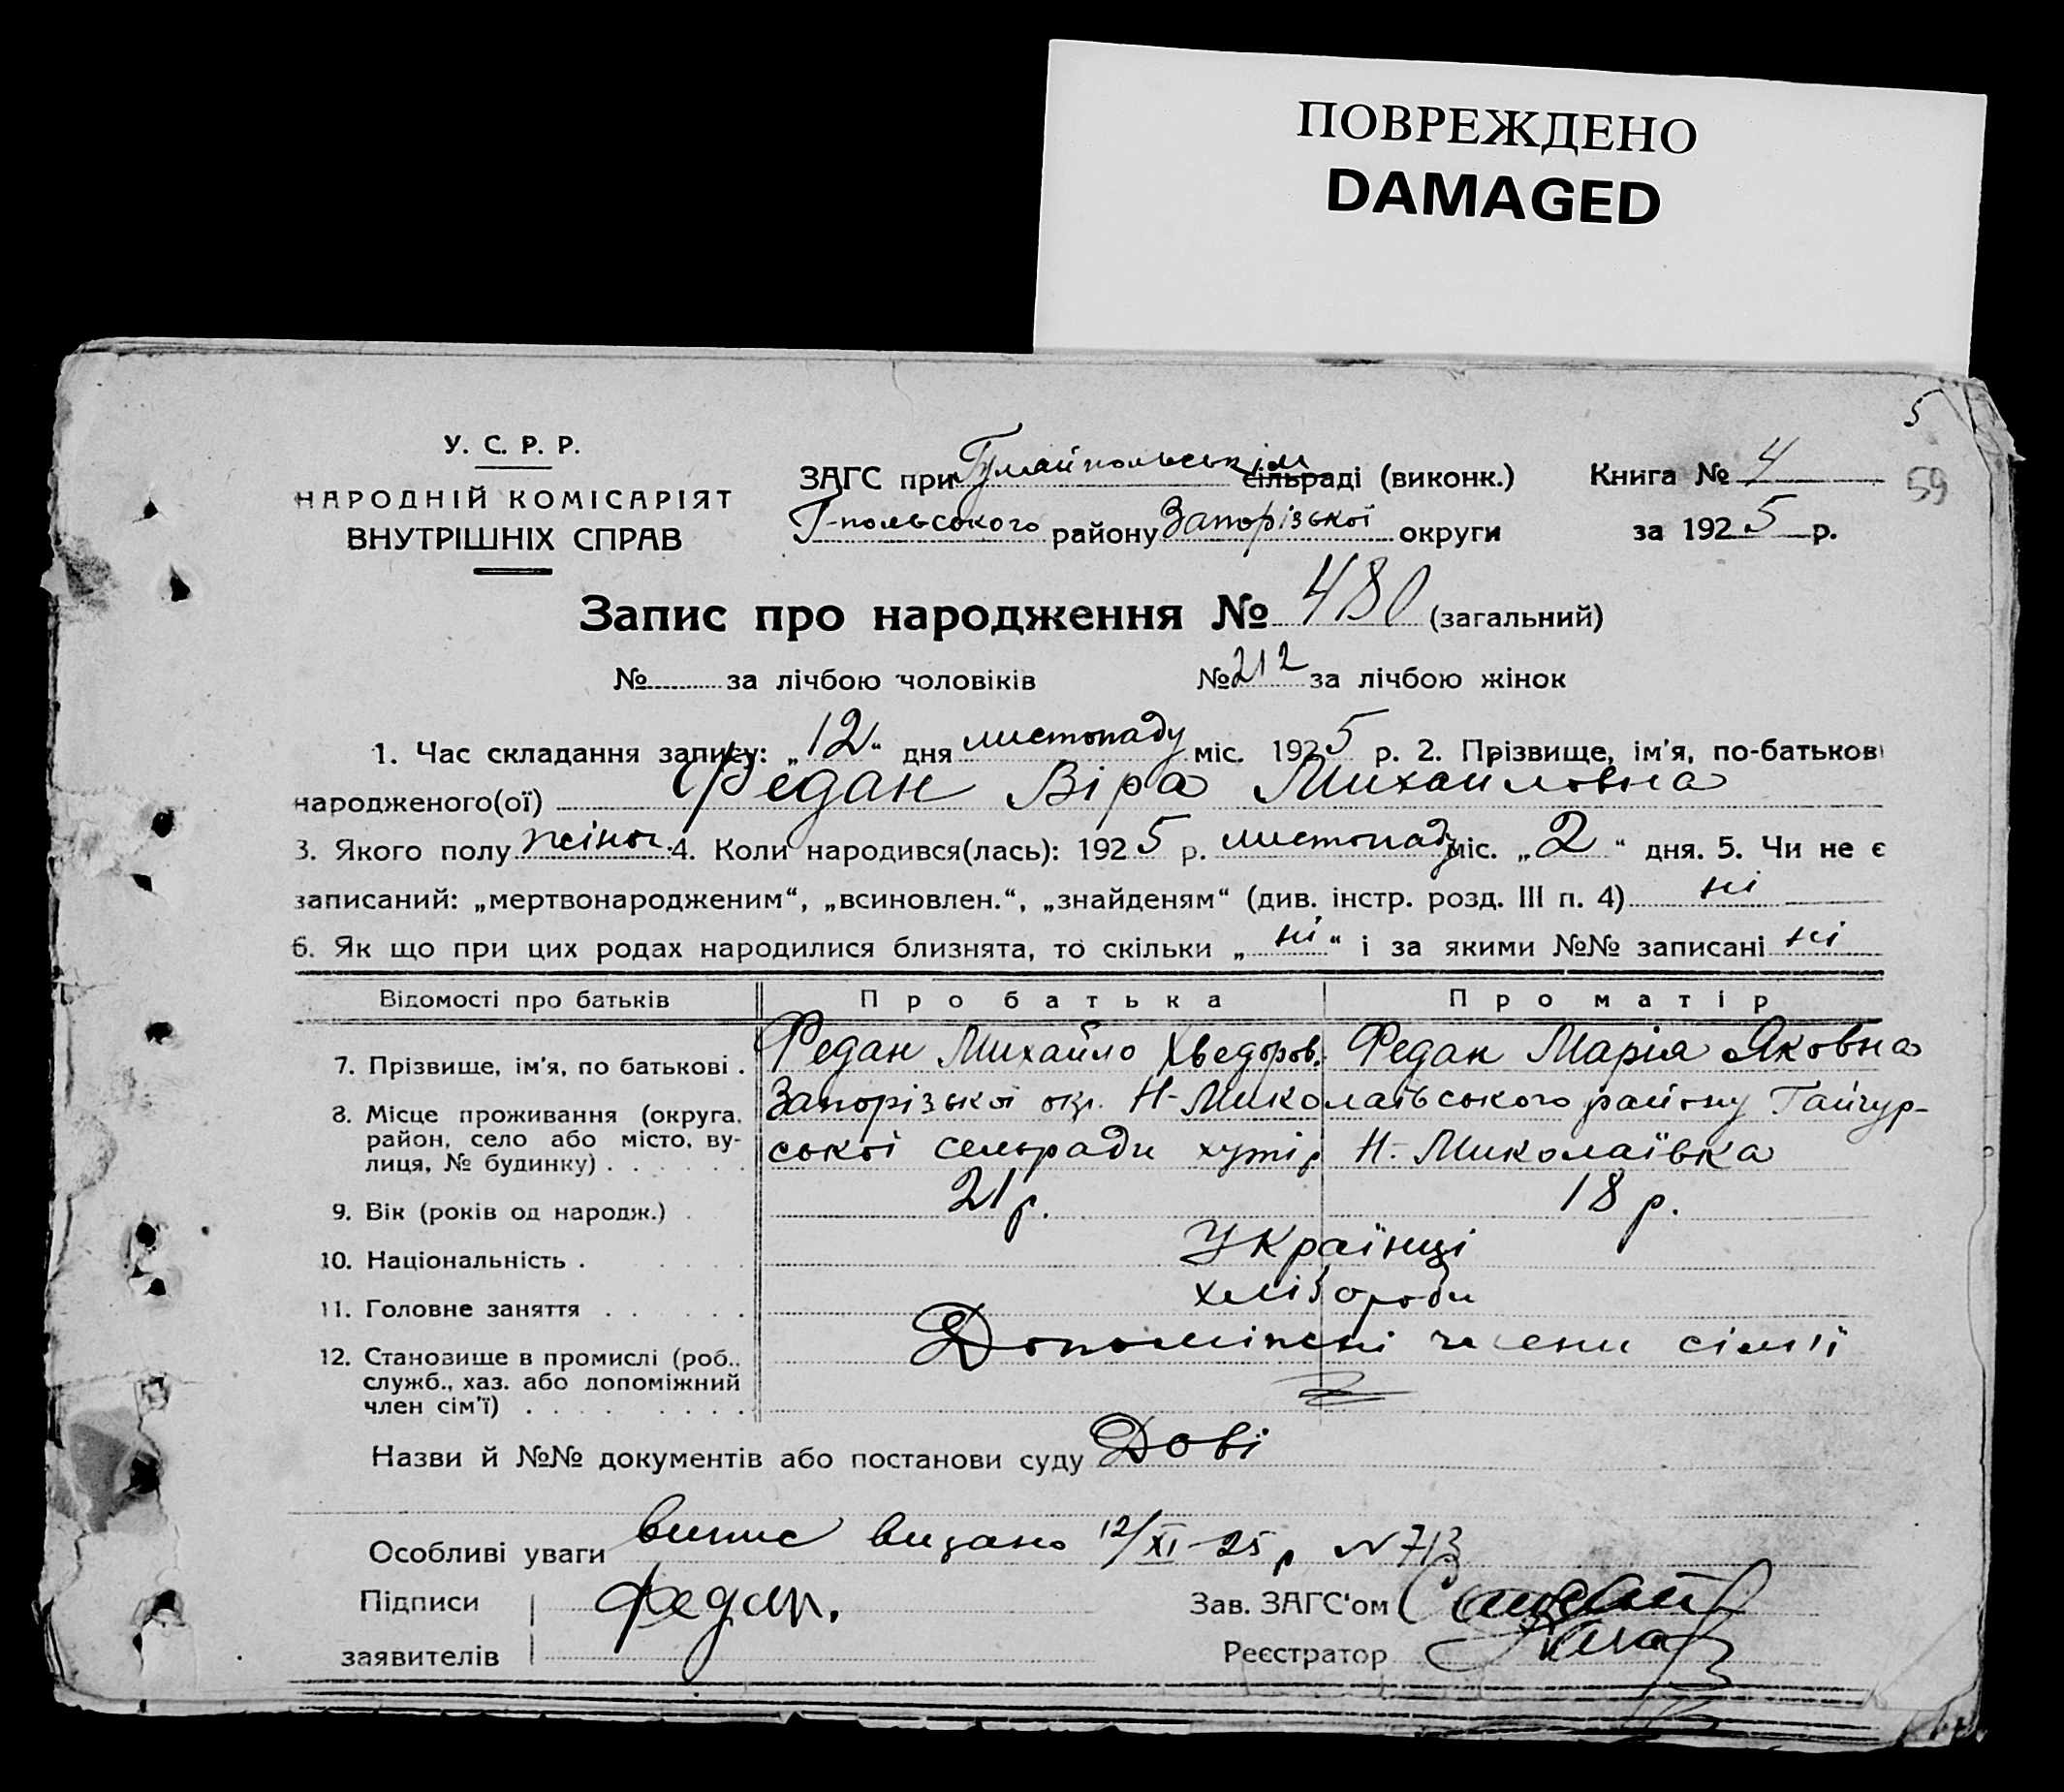 ПОВРЕЖДЕНО
DAMAGED
5
59
У. С. Р. Р.
НАРОДНІЙ КОМІСАРІЯТ
ВНУТРІШНІХ СПРАВ
ЗАГС при Гуляйпольськім сільраді (виконк.)
Г-польського району Запорізької округи
Книга № 4
за 1925 р.
Запис про народження № 480 (загальний)
№ за лічбою чоловіків № 212 за лічбою жінок
1. Час складання запису: „12“ дня листопаду міс. 1925 р. 2. Прізвище, ім'я, по-батькові
народженого(ої) Федан Віра Михайловна
3. Якого полу жіноч. 4. Коли народився(лась): 1925 р. листопаду міс. „2“ дня. 5. Чи не є
записаний: „мертвонародженим“, „всиновлен.“, „знайденям“ (див. інстр. розд. III п. 4) ні
6. Як що при цих родах народилися близнята, то скільки „ні“ і за якими №№ записані ні
Відомості про батьків Про батька Про матір
7. Прізвище, ім'я, по батькові . Федан Михайло Хведоров. Федан Марія Яковна
8. Місце проживання (округа, район, село або місто, вулиця, № будинку) . . . . . . Запорізької окр. Н-Миколаївського району Гайчур-
ської сельради хутір Н-Миколаївка
9. Вік (років од народж.) . 21 р. 18 р.
10. Національність . Українці
11. Головне заняття . . . . . хлібороби
12. Становище в промислі (роб., служб., хаз. або допоміжний член сім'ї) . . . . . . . . Допоміжні члени сімї
Назви й №№ документів або постанови суду Дові
Особливі уваги випис видано 12/XI-25 р №713
Підписи
заявителів
Федан.
Зав. ЗАГС'ом
Реєстратор